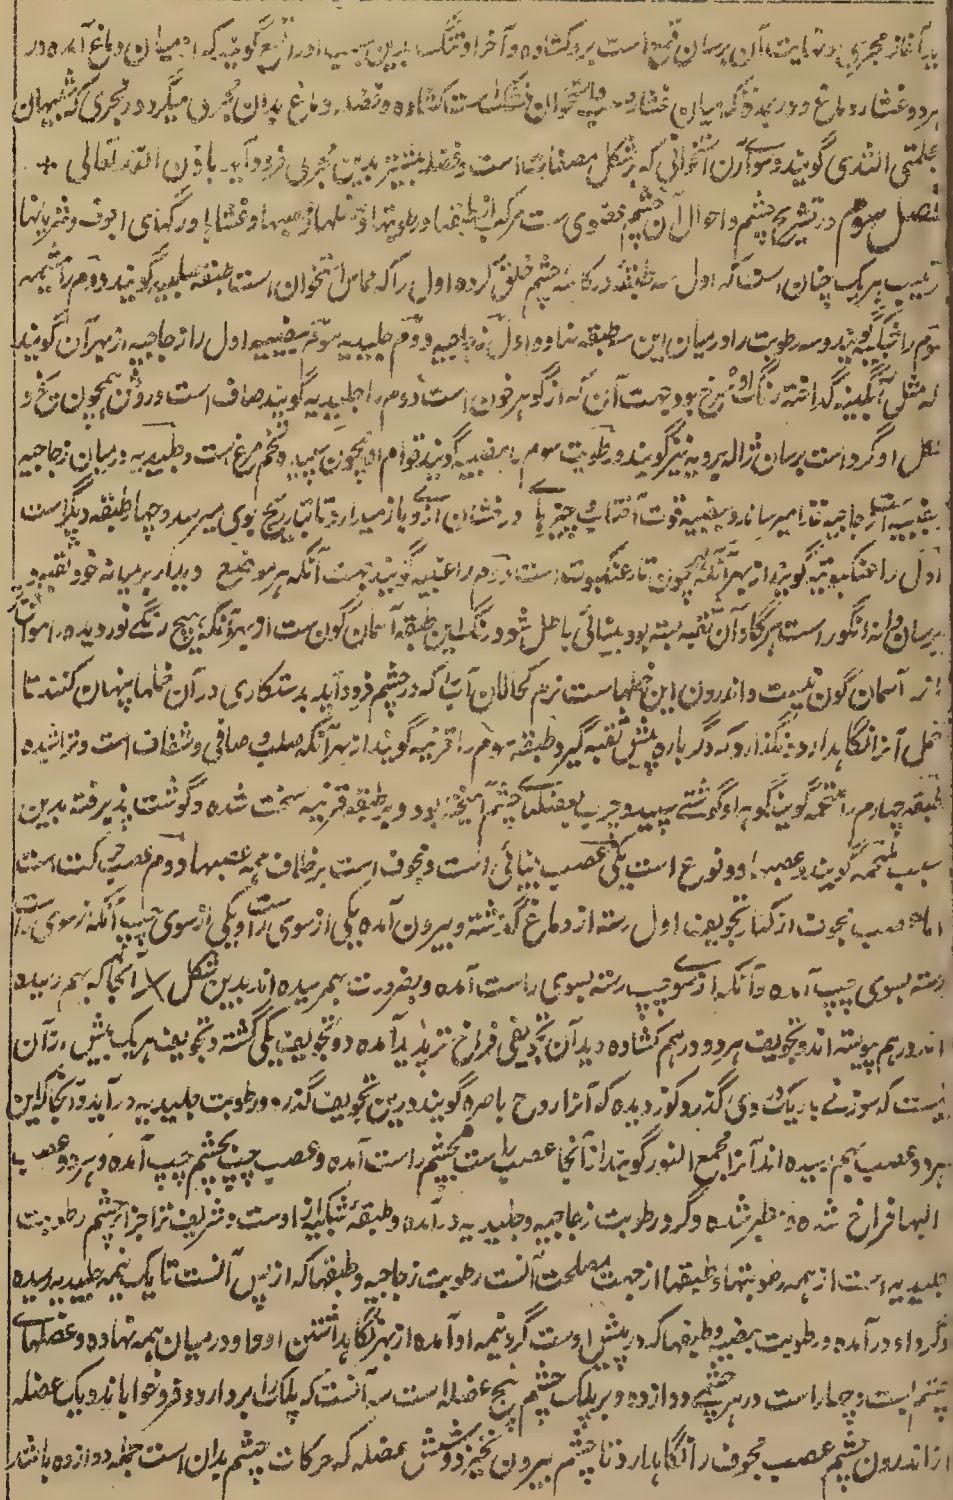 آغاز مجری و نهایت آن برسان قمع است پر و کشاده و آخر او تنگ بدین سبب او را قمع گویند که از میان دماغ آمده در
هر دو غشاء دماغ و در بعد که میان غشاء صلب و استخوان مشکل است کشاده و فضله دماغ بدان مجری میگردد در مجری که شبیهان
بحلمتی الثدی گویند و سوی آن استخوانی که بشکل مصفات است و فضله بیشتر بدین مجری فرود آید باذن الله تعالی
فصل سوم در تشریح چشم و احوال آن چشم عضوی ست مرکب از طبقها و رطوبتها و عضلها و عصبها و غشاها و رگهای اجوف و شریانها
ترکیب هر یک چنان است که اول سه طبقه در کاسه چشم خلق کرده اول را که مماس استخوان است طبقه صلبیه گویند دوم را مشیمیه
سوم را شبکیه گویند و سه رطوبت را در میان این سه طبقه نهاده اول زجاجیه دوم جلیدیه سوم بیضیه اول را زجاجیه از بهر آن گویند
که مثل آبگینه گداخته رنگ او سرخ بود جهت آن که از گوهر خون است دوم را جلیدیه گویند صاف است و روشن همچون یخ و
شکل او گرد است برسان ژاله و نیز گویند و رطوبت سوم را بیضیه گویند قوام او همچون سپیده تخم مرغ است و جلیدیه در میان زجاجیه
و بیضیه است زجاجیه غذا میرساند و بیضیه قوت آفتاب و چیزهای درخشان ازو باز میدارد تا بتدریج بوی میرسد و چهار طبقه دیگر است
اول را عنکبوتیه گویند از بهر آنکه همچون تار عنکبوت است دوم را عنبیه گویند جهت آنکه هر موضع دیدار بر میانه او ثقبه
برسان دانه انگور است هرگاه آن ثقبه بسته بود بینائی باطل شود رنگ این طبقه آسمان گون ست از بهر آنکه هیچ رنگ نور دیده را موافق تر
از آسمان گون نیست و اندرون این خملهاست نرم کحالان آب را که در چشم فرود آید بدستکاری در آن خملها پنهان کنند تا
خمل آنرا نگاهدارد و نگذارد که دگر باره پیش ثقبه گیرد طبقه سوم را قرنیه گویند از بهر آنکه صلب و صافی و شفاف است و تراشیده
طبقه چهارم را ملتحمه گویند گوهر او گوشتی سپید و چرب بعضلهای چشم آمیخته بود و بر طبقه قرنیه سخت شده و گوشت پذیرفته بدین
سبب ملتحمه گویند و عصبها دو نوع است یکی عصب بینائی است و مجوف است برخلاف همه عصبها دوم عصب حرکت است
اما عصب مجوف از کنار تجویف اول رسته از دماغ گذشته و بیرون آمده یکی از سوی راست و یکی از سوی چپ آنکه از سوی راست
رسته بسوی چپ آمده و آنکه از سوی چپ رسته بسوی راست آمده و بضرورت بهم رسیده اند بدین شکل X آنجا که بهم رسیده
اند در هم پیوسته اند و تجویف هر دو در هم کشاده و بدان تجویفی فراخ تر پدید آمده دو تجویف یکی گشته و تجویف هر یک بیش از آن
نیست که سوزنی باریک در وی گذرد و نور دیده که آنرا روح باصره گویند درین تجویف گذرد و برطوبت جلیدیه در آید و آنجا که این
هر دو عصب بهم رسیده اند آنرا مجمع النور گویند از آنجا عصب راست بچشم راست آمده و عصب چپ بچشم چپ آمده و هر دو عصب را
البها فراخ شده و سطبر شده و گرد رطوبت زجاجیه و جلیدیه در آمده و طبقه شبکیه از اوست و شریف تر اجزا چشم رطوبت
جلیدیه است از همه رطوبتها و طبقها از جهت مصلحت آنست رطوبت زجاجیه و طبقها که از پس آنست تا یک نیمه جلیدیه رسیده
و گرد او در آمده و رطوبت بیضیه و طبقها که در پیش اوست گرد نیمه او آمده از بهر نگاهداشتن او و او در میان همه نهاده و عضلهای
چشم بیست و چهار است در هر چشمی دوازده و بر پلک چشم پنج عضله است سه آنست که پلک را بردارد و فرو خواباند و یک عضله
از اندرون چشم عصب مجوف را نگاهدارد تا چشم بیرون نخیزد و شش عضله که حرکات چشم بدان است جمله دوازده باشد